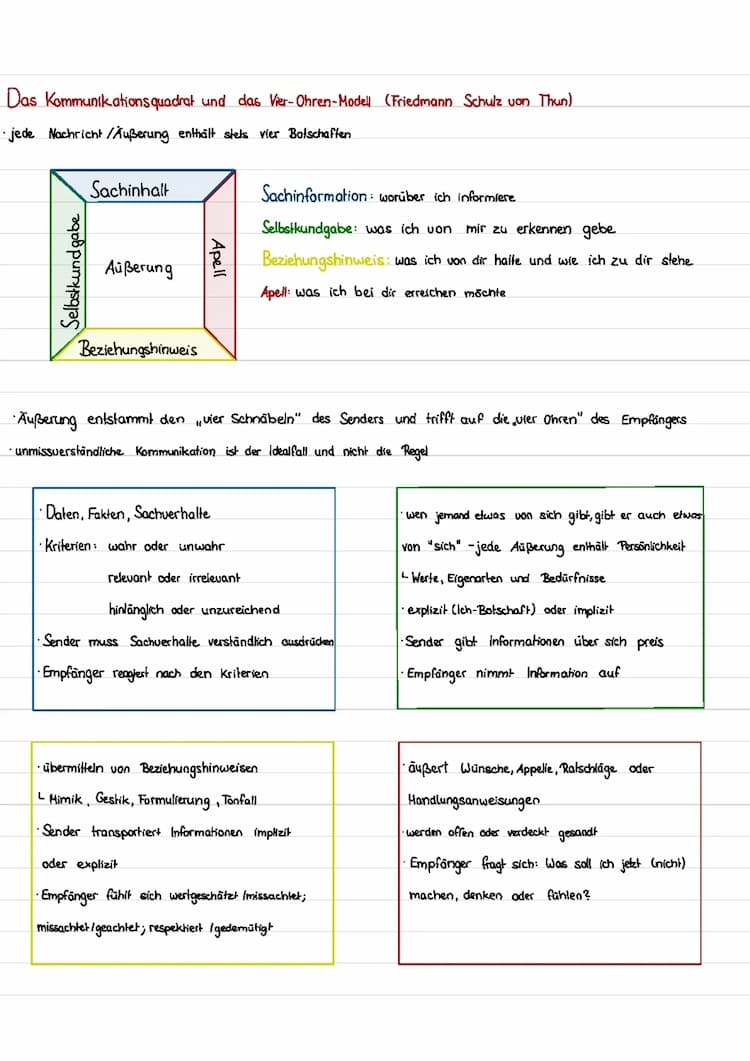 Das Kommunikationsquadrat und das Vier-Ohren-Modell (Friedmann Schulz von Thun)
· jede Nachricht/Äußerung enthält stets vier Botschaften
Sachinhalt
Selbstkundgabe
Äußerung
Apell
Beziehungshinweis
Sachinformation: worüber ich informiere
Selbstkundgabe: was ich von mir zu erkennen gebe
Beziehungshinweis: was ich von dir halte und wie ich zu dir stehe
Apell: was ich bei dir erreichen möchte
· Äußerung entstammt den „vier Schnäbeln" des Senders und trifft auf die „vier Ohren" des Empfängers
· unmissverständliche Kommunikation ist der Idealfall und nicht die Regel
· Daten, Fakten, Sachverhalte
· Kriterien: wahr oder unwahr
relevant oder irrelevant
hinlänglich oder unzureichend
· Sender muss Sachverhalte verständlich ausdrücken
· Empfänger reagiert nach den Kriterien
· wen jemand etwas von sich gibt, gibt er auch etwas
von "sich" - jede Äußerung enthält Persönlichkeit
↳ Werte, Eigenarten und Bedürfnisse
· explizit (Ich-Botschaft) oder implizit
· Sender gibt Informationen über sich preis
· Empfänger nimmt Information auf
· übermitteln von Beziehungshinweisen
↳ Mimik, Gestik, Formulierung, Tonfall
· Sender transportiert Informationen implizit
oder explizit
· Empfänger fühlt sich wertgeschätzt/missachtet;
missachtet/geachtet; respektiert/gedemütigt
· äußert Wünsche, Appelle, Ratschläge oder
Handlungsanweisungen
· werden offen oder verdeckt gesandt
· Empfänger fragt sich: Was soll ich jetzt (nicht)
machen, denken oder fühlen?